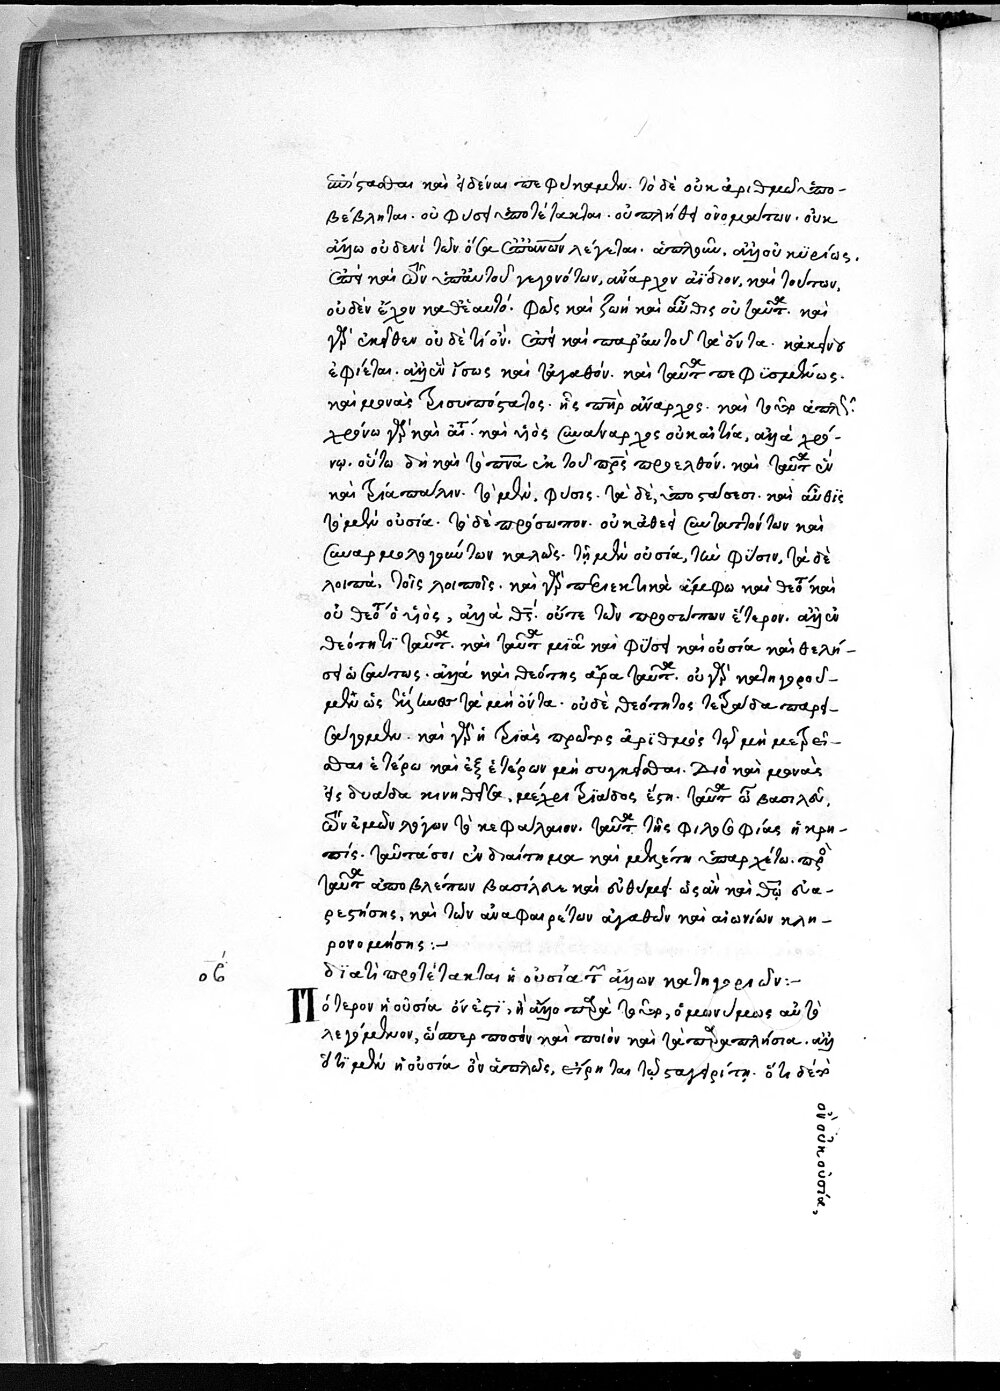 καὶ εἰδέναι πεφύκαμεν. τὸ δὲ οὐκ ἀριθμῷ ὑπο-
βέβληται. οὐ φύσει ὑποτέτακται. οὐ πλήθει ὀνομάτων. οὐκ
ἄλλω οὐδενὶ τῶν ὅσα λέγεται. ἁπλοῦν. ἀλλ' οὐ κυρίως.
καὶ ὑπ' αὐτοῦ γεγονότων, ἄναρχον ἀΐδιον, καὶ τούτων,
οὐδὲν ἔχον καθ' ἑαυτό. φῶς καὶ ζωὴ καὶ αὖθις οὐ ταῦτα. καὶ
γὰρ ἐκεῖθεν οὐδέ τι ὄν. καὶ παρ' αὐτοῦ τὰ ὄντα. κἀκείνου
ἐφίεται. ἀλλ' ἓν ἴσως καὶ τἀγαθόν. καὶ ταῦτα πεφεισμένως.
καὶ μονὰς τρισυπόστατος. ἧς πὴρ ἄναρχος. καὶ
χρόνω γὰρ καὶ καὶ υἱὸς συνάναρχος οὐκ αἰτία, ἀλλὰ χρό-
νῳ. οὕτω δὴ καὶ τὸ πνα ἐκ τοῦ πρς προελθόν. καὶ ταῦτα ἓν
καὶ τρία πάλιν. τὸ μὲν, φύσις. τὰ δὲ, ὑποστάσεσι. καὶ αὖθις
τὸ μὲν οὐσία. τὸ δὲ πρόσωπον. οὐ καθεῖς συνταττόντων καὶ
συναρμολογούντων καλῶς. τῇ μὲν οὐσία, τὴν φύσιν, τὰ δὲ
λοιπὰ, τοῖς λοιποῖς. καὶ γὰρ περιεκτικὰ ἄμφω καὶ θεοῦ καὶ
οὐ θεοῦ ὁ υἱὸς, ἀλλὰ θς. οὔτε τῶν προσώπων ἕτερον. ἀλλ' ἐν
θεότητι ταῦτα. καὶ ταῦτα μία καὶ φύσει καὶ οὐσία καὶ θελή-
σει ὡσαύτως. ἀλλὰ καὶ θεότης ἄρα ταῦτα. οὐ γὰρ κατηγοροῦ-
μεν ὡς τὰ μὴ ὄντα. οὐδὲ θεότητος τετράδα παρει-
σάγομεν. καὶ γὰρ ἡ τριὰς πρῶτος ἀριθμὸς τῷ μὴ μετρεῖ-
σθαι ἑτέρω καὶ ἐξ ἑτέρων μὴ συγκεῖσθαι. Διὸ καὶ μονὰς
εἰς δυάδα κινηθεῖσα, μέχρι τριάδος ἔστη. ταῦτα ὦ βασιλεῦ,
τῶν ἐμῶν λόγων τὸ κεφάλαιον. ταῦτα τῆς φιλοσοφίας ἡ κρη-
πίς. ταῦτα σοι ἐνδιαίτημα καὶ μελέτη ὑπαρχέτω. πρὸς
ταῦτα ἀποβλέπων βασίλευε καὶ εὐθύμει. ὡς ἂν καὶ θῶ εὐα-
ρεστήσης, καὶ τῶν ἀναφαιρέτων ἀγαθῶν καὶ αἰωνίων κλη-
ρονομήσης:-
οβ´ διατί προτέτακται ἡ οὐσία τῶν ἄλλων κατηγοριῶν:-
Πότερον ἡ οὐσία ὄν ἐστι, ἢ ἄλλο παρὰ τὸ ὂν, ὁμωνύμως αὐτὸ
λεγόμενον, ὥσπερ ποσὸν καὶ ποιὸν καὶ τὰ παραπλήσια. ἀλλ'
ὅτι μὲν ἡ οὐσία ὂν ἁπλῶς, εἴρηται τῷ σταγειρίτῃ. ὅτι δὲ τὸ
ὂν οὐκ οὐσία,